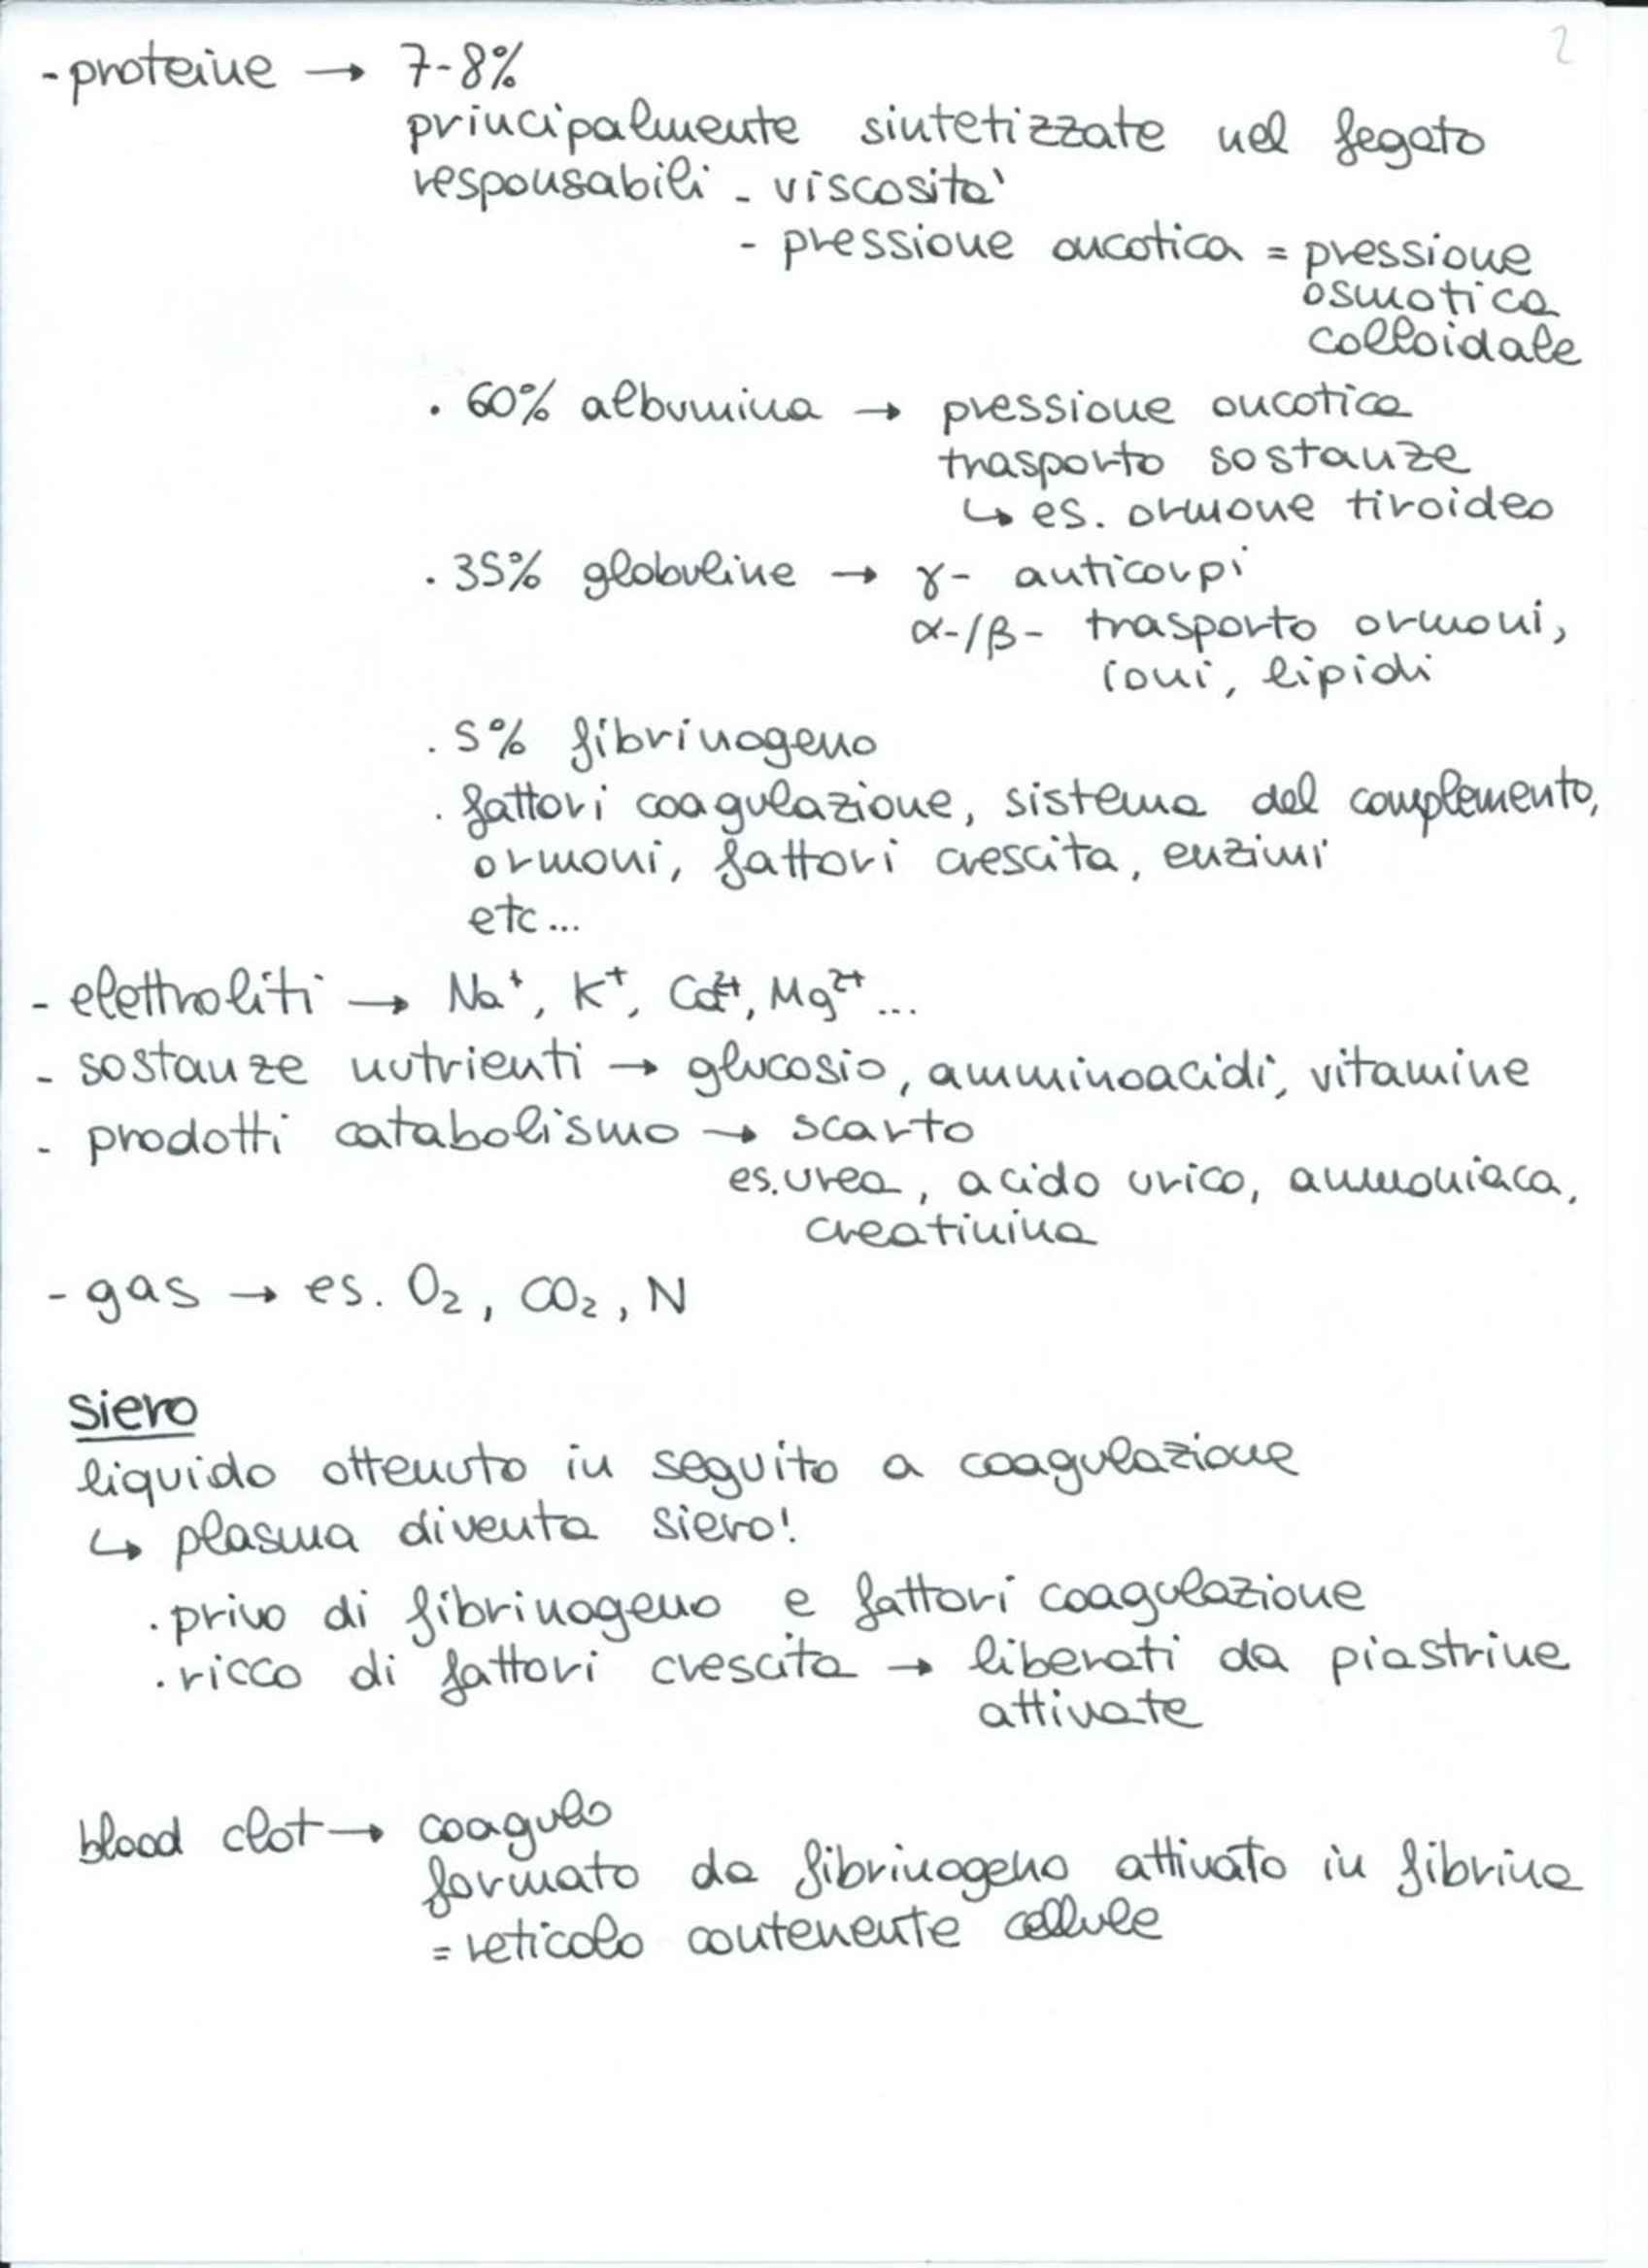 2
- proteine → 7-8%
principalmente sintetizzate nel fegato
responsabili - viscosità
- pressione oncotica = pressione
osmotica
colloidale
. 60% albumina → pressione oncotica
trasporto sostanze
↳ es. ormone tiroideo
. 35% globuline → γ- anticorpi
α-/β- trasporto ormoni,
ioni, lipidi
. 5% fibrinogeno
. fattori coagulazione, sistema del complemento,
ormoni, fattori crescita, enzimi
etc...
- elettroliti → Na⁺, K⁺, Ca²⁺, Mg²⁺...
- sostanze nutrienti → glucosio, amminoacidi, vitamine
- prodotti catabolismo → scarto
es. urea, acido urico, ammoniaca,
creatinina
- gas → es. O₂, CO₂, N
siero
liquido ottenuto in seguito a coagulazione
↳ plasma diventa siero!
. privo di fibrinogeno e fattori coagulazione
. ricco di fattori crescita → liberati da piastrine
attivate
blood clot → coagulo
formato da fibrinogeno attivato in fibrina
= reticolo contenente cellule